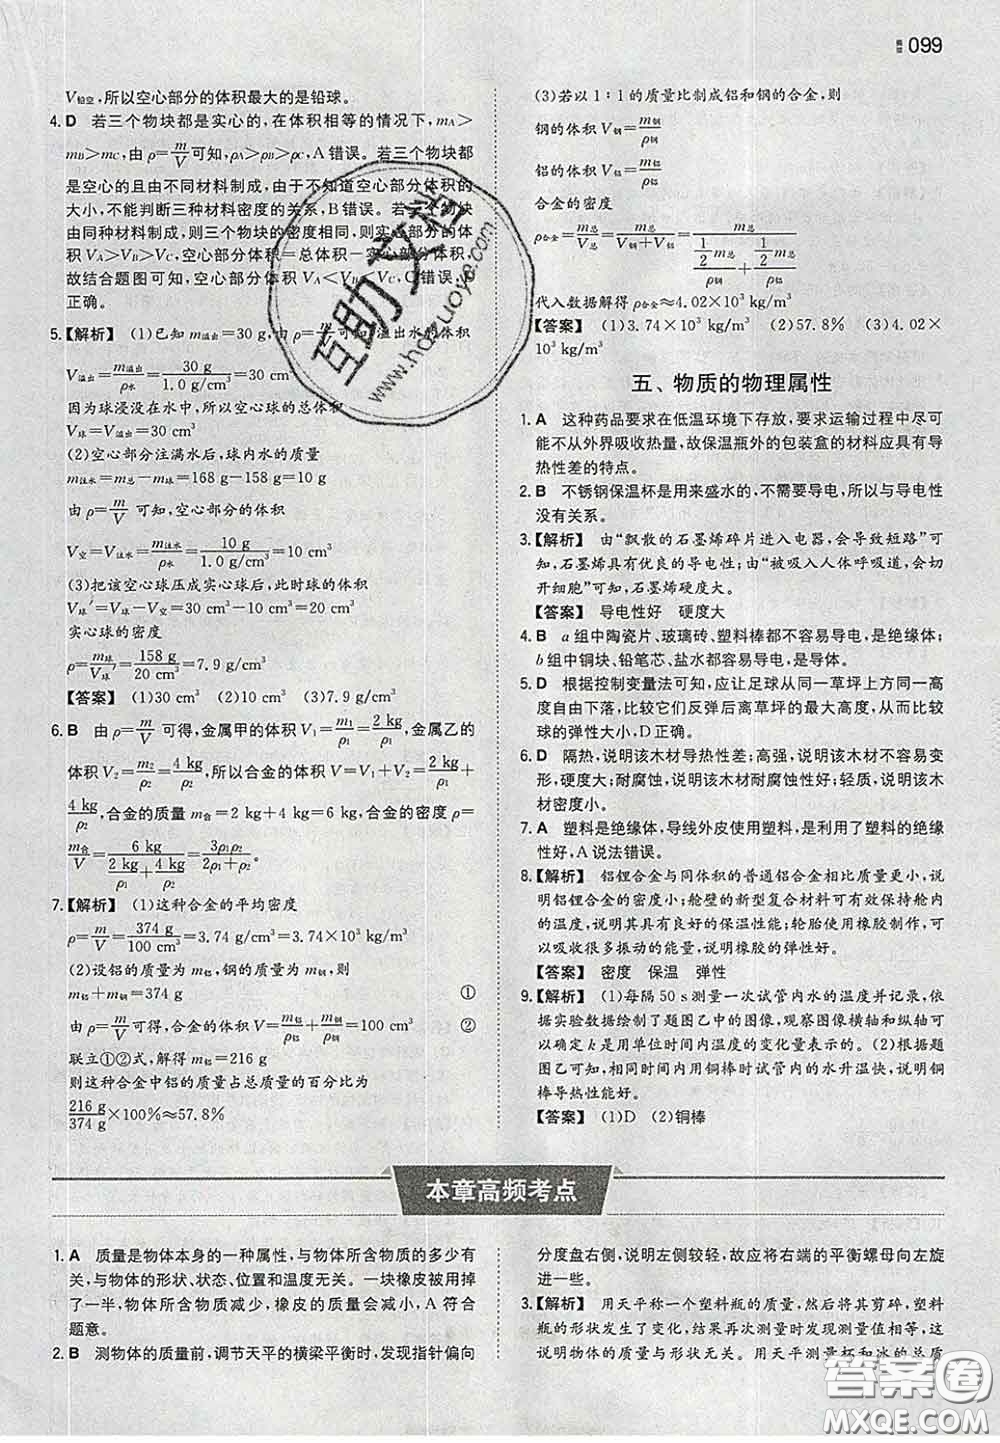 099
V铅空,所以空心部分的体积最大的是铅球。
4. D 若三个物块都是实心的,在体积相等的情况下,mA>
mB>mC,由ρ=m/V可知,ρA>ρB>ρC,A错误。若三个物块都
是空心的且由不同材料制成,由于不知道空心部分体积的
大小,不能判断三种材料密度的关系,B错误。若三个物块
由同种材料制成,则三个物块的密度相同,则实心部分的体
积VA>VB>VC,空心部分体积=总体积-实心部分体积,
故结合题图可知,空心部分体积VA<VB<VC,C错误,D
正确。
5.【解析】 (1)已知m溢出=30 g,由ρ=m/V可知,溢出水的体积
V溢出=m溢出/ρ水=30 g/1.0 g/cm³=30 cm³
因为球浸没在水中,所以空心球的总体积
V球=V溢出=30 cm³
(2)空心部分注满水后,球内水的质量
m注水=m总-m球=168 g-158 g=10 g
由ρ=m/V可知,空心部分的体积
V空=V注水=m注水/ρ水=10 g/1.0 g/cm³=10 cm³
(3)把该空心球压成实心球后,此时球的体积
V球′=V球-V空=30 cm³-10 cm³=20 cm³
实心球的密度
ρ=m球/V球′=158 g/20 cm³=7.9 g/cm³
【答案】 (1)30 cm³ (2)10 cm³ (3)7.9 g/cm³
6. B 由ρ=m/V可得,金属甲的体积V1=m1/ρ1=2 kg/ρ1,金属乙的
体积V2=m2/ρ2=4 kg/ρ2,所以合金的体积V=V1+V2=2 kg/ρ1+
4 kg/ρ2,合金的质量m合=2 kg+4 kg=6 kg,合金的密度ρ=
m合/V=6 kg/(2 kg/ρ1+4 kg/ρ2)=3ρ1ρ2/(2ρ1+ρ2)。
7.【解析】 (1)这种合金的平均密度
ρ=m/V=374 g/100 cm³=3.74 g/cm³=3.74×10³ kg/m³
(2)设铝的质量为m铝,钢的质量为m钢,则
m铝+m钢=374 g ①
由ρ=m/V可得,合金的体积V=m铝/ρ铝+m钢/ρ钢=100 cm³ ②
联立①②式,解得m铝=216 g
则这种合金中铝的质量占总质量的百分比为
216 g/374 g×100%≈57.8%
(3)若以1:1的质量比制成铝和钢的合金,则
钢的体积V钢=m钢/ρ钢
铝的体积V铝=m铝/ρ铝
合金的密度
ρ合金=m总/V总=m总/(V钢+V铝)=m总/(½m总/ρ钢+½m总/ρ铝)
代入数据解得ρ合金≈4.02×10³ kg/m³
【答案】 (1)3.74×10³ kg/m³ (2)57.8% (3)4.02×
10³ kg/m³
五、物质的物理属性
1. A 这种药品要求在低温环境下存放,要求运输过程中尽可
能不从外界吸收热量,故保温瓶外的包装盒的材料应具有导
热性差的特点。
2. B 不锈钢保温杯是用来盛水的,不需要导电,所以与导电性
没有关系。
3.【解析】 由“飘散的石墨烯碎片进入电器,会导致短路”可
知,石墨烯具有优良的导电性;由“被吸入人体呼吸道,会切
开细胞”可知,石墨烯硬度大。
【答案】 导电性好 硬度大
4. B a组中陶瓷片、玻璃砖、塑料棒都不容易导电,是绝缘体;
b组中铜块、铅笔芯、盐水都容易导电,是导体。
5. D 根据控制变量法可知,应让足球从同一草坪上方同一高
度自由下落,比较它们反弹后离草坪的最大高度,从而比较
球的弹性大小,D正确。
6. D 隔热,说明该木材导热性差;高强,说明该木材不容易变
形,硬度大;耐腐蚀,说明该木材耐腐蚀性好;轻质,说明该木
材密度小。
7. A 塑料是绝缘体,导线外皮使用塑料,是利用了塑料的绝缘
性好,A说法错误。
8.【解析】 铝锂合金与同体积的普通铝合金相比质量更小,说
明铝锂合金的密度小;舱壁的新型复合材料可有效保持舱内
的温度,说明其具有良好的保温性能;轮胎使用橡胶制作,可
以吸收很多振动的能量,说明橡胶的弹性好。
【答案】 密度 保温 弹性
9.【解析】 (1)每隔50 s测量一次试管内水的温度并记录,依
据实验数据绘制了题图乙中的图像,观察图像横轴和纵轴可
以确定k是用单位时间内温度的变化量表示的。(2)根据题
图乙可知,相同时间内用铜棒时试管内的水升温快,说明铜
棒导热性能好。
【答案】 (1)D (2)铜棒
本章高频考点
1. A 质量是物体本身的一种属性,与物体所含物质的多少有
关,与物体的形状、状态、位置和温度无关。一块橡皮被用掉
了一半,物体所含物质减少,橡皮的质量会减小,A符合
题意。
2. B 测物体的质量前,调节天平的横梁平衡时,发现指针偏向
分度盘右侧,说明左侧较轻,故应将右端的平衡螺母向左旋
进一些。
3.【解析】 用天平称一个塑料瓶的质量,然后将其剪碎,塑料
瓶的形状发生了变化,结果再次测量时测量值相等,这
说明物体的质量与形状无关。用天平测量杯和冰的总质
互助文档
www.hdzuoye.com
答案圈
MXQE.COM